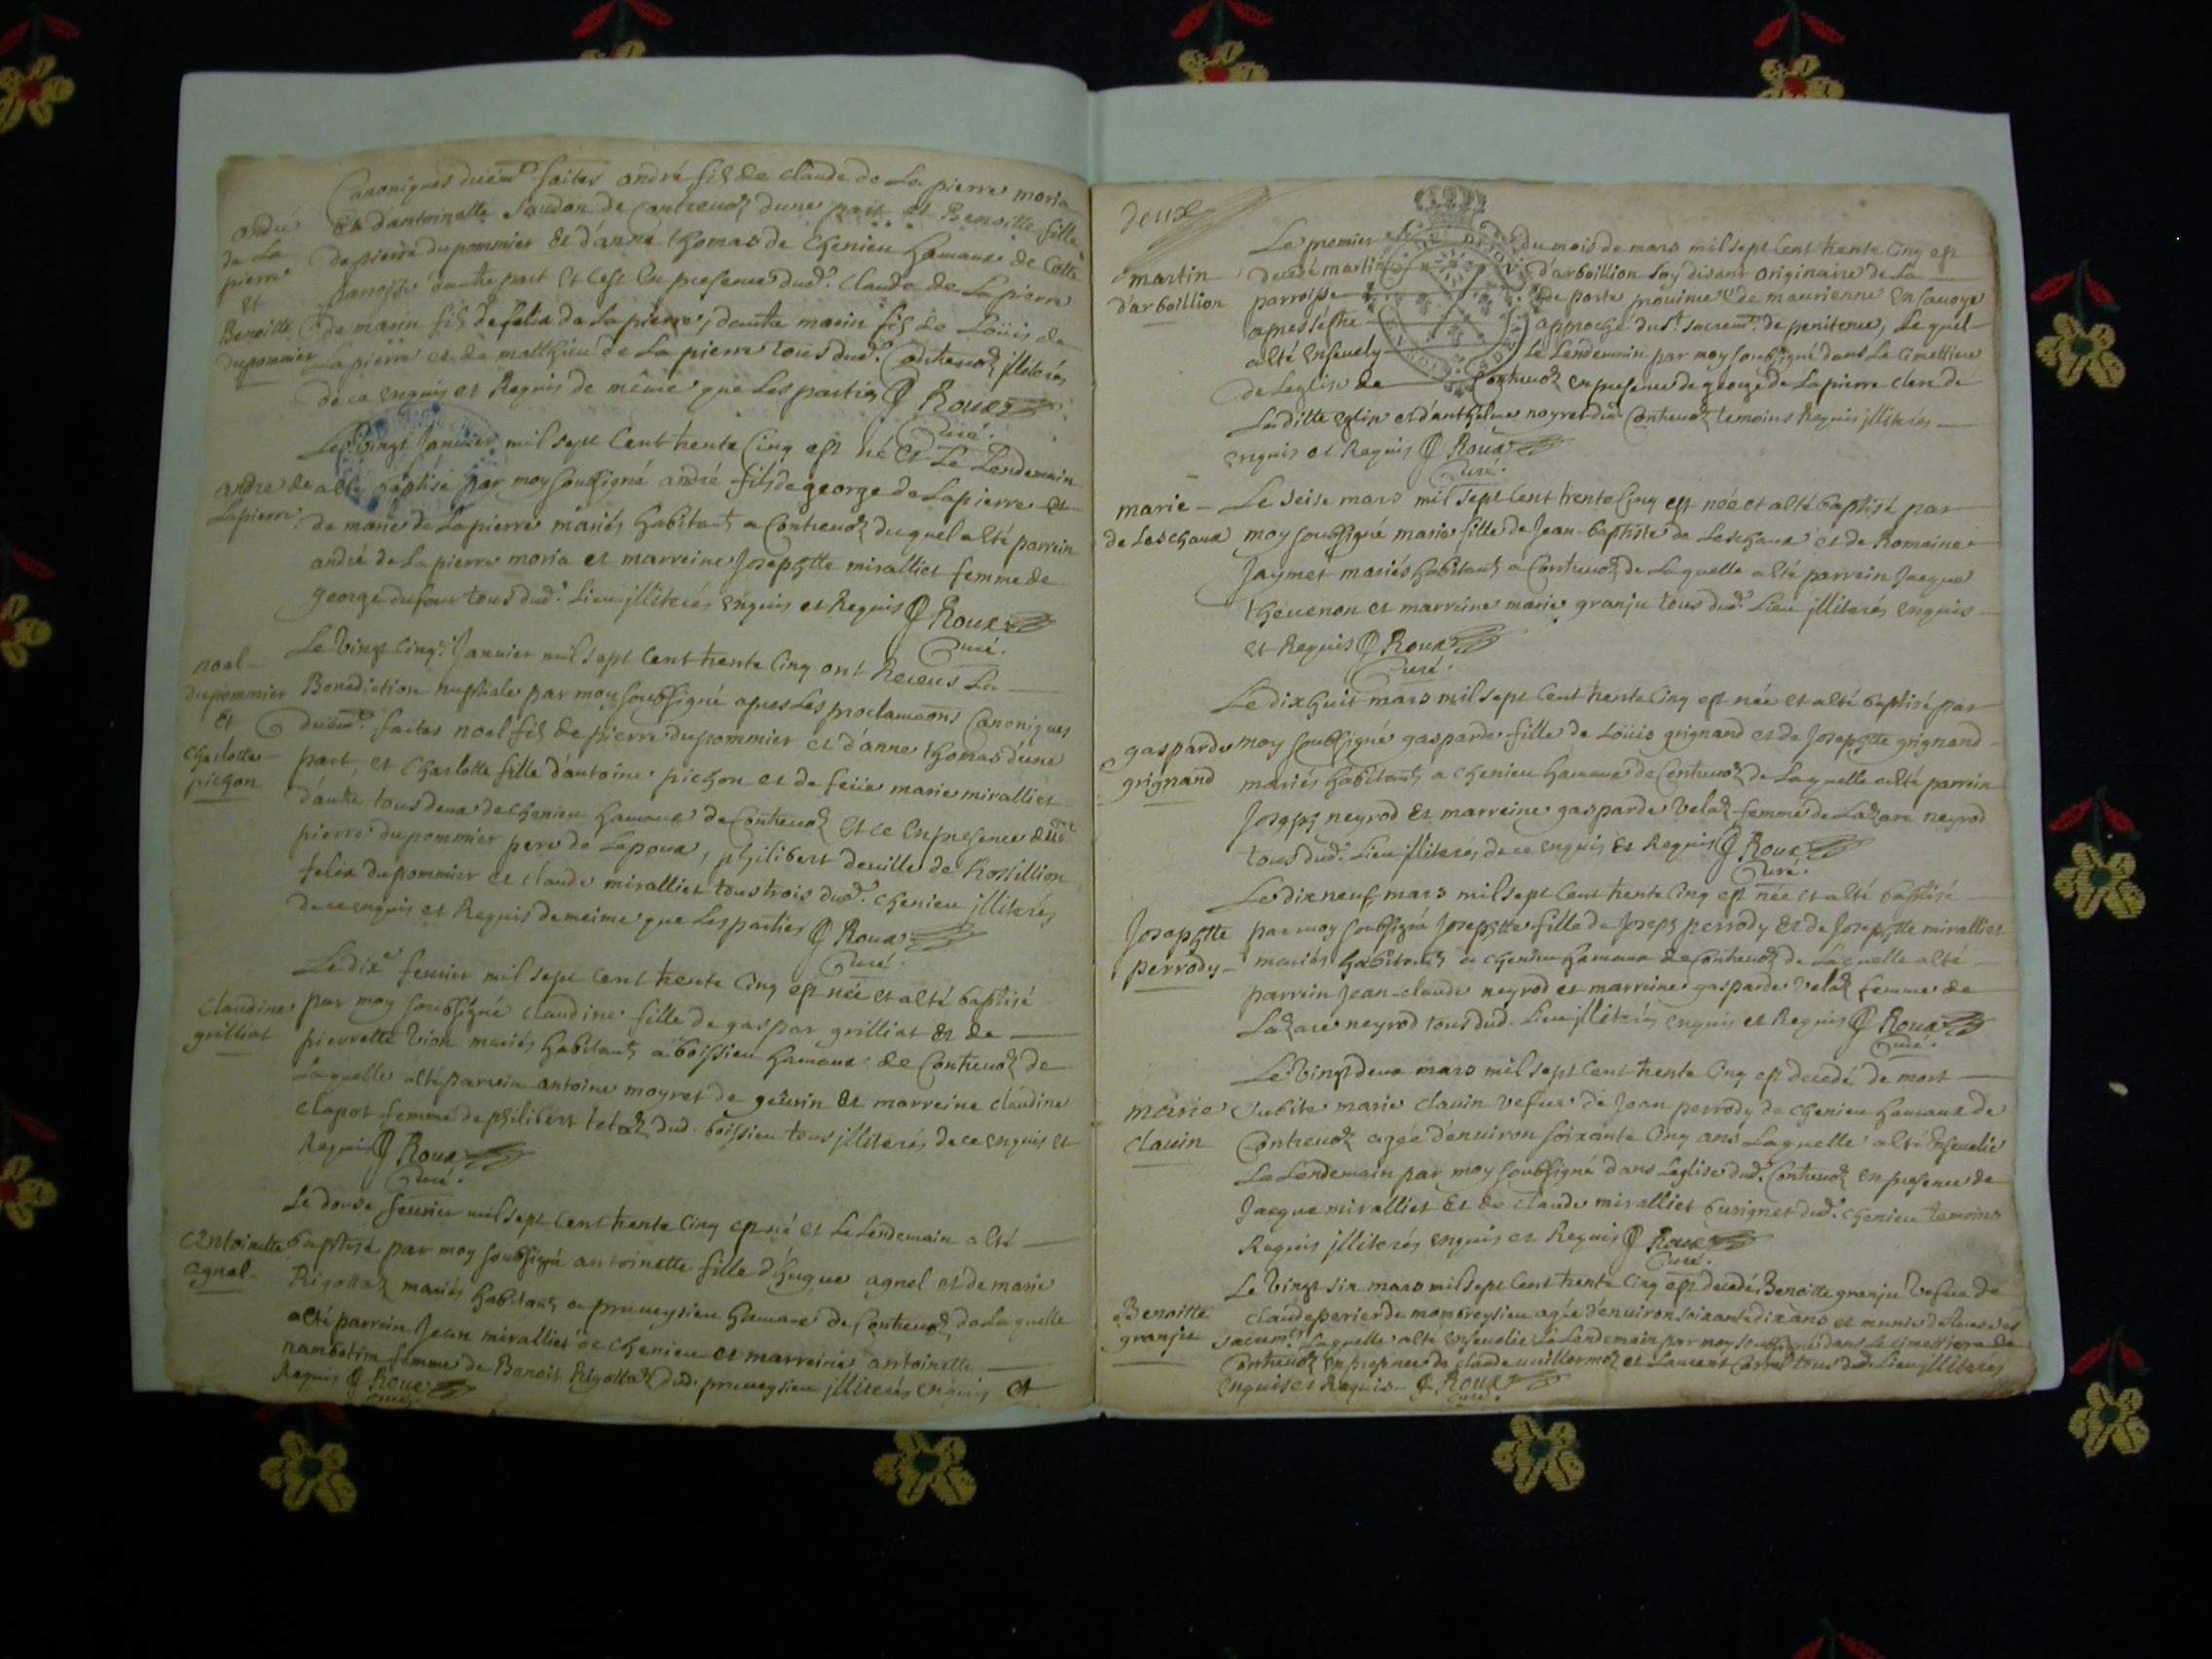 Canoniques düem.t faites andré fils de claude de La pierre moria
andré
de La
pierre
et
Benoitte
dupommier
Et d'antoinette Saudon de Contrevoz d'une part et Benoitte fille
de pierre du pommier Et d'anne thomas de chenieu hameaux de Cette
paroisse d'autre part Et c'est En presence dud.t claude de La pierre
de marin fils de felix de La pierre, d'autre marin fils de Loüis de
La pierre et de matthieu de La pierre tous dud.t Contrevoz jlliterés
de ce enquis et Requis de même que Les parties Roux
Curé.
andre de
Lapierre
Le vingt Janvier mil sept Cent trente Cinq est né Et Le Lendemain
a esté baptisé par moy soubsigné andré fils de george de Lapierre et
de marie de Lapierre mariés habitants a Contrevoz duquel a esté parrein
andré de La pierre moria et marreine Josephtte miralliet femme de
george dufour tous dud.t Lieu jlliterés enquis et Requis Roux
Curé.
noel
dupommier
Et
Charlotte
pichon
Le vingt Cinq.e Janvier mil sept Cent trente Cinq ont Receus La
Benediction nuptiale par moy soubsigné apres Les proclamaõns Canoniques
düem.t faites noel fils de pierre dupommier et d'anne thomas d'une
part et Charlotte fille d'antoine pichon et de feüe marie miralliet
d'autre tous deux de chenieu hameaux de Contrevoz Et ce En presence dud.t
pierre dupommier pere de Lepoux, philibert deville de Rossillion
felix dupommier et claude miralliet tous trois dud.t chenieu jlliterés
de ce enquis et Requis de meime que Les parties Roux
Curé.
claudine
grilliat
Le dix.e fevrier mil sept Cent trente Cinq est née et a esté baptisé
par moy soubsigné claudine fille de gaspar grilliat Et de
pierrette vion mariés habitants a boissieu hameaux de Contrevoz de
Laquelle a esté parrein antoine moyret de geüvrin Et marreine claudine
clapot femme de philibert tetaz dud. boissieu tous jlliterés de ce enquis et
Requis Roux
Curé.
antoinette
agnel
Le douse fevrier mil sept Cent trente Cinq est né et Le Lendemain a esté
baptisé par moy soubsigné antoinette fille d'hugue agnel et de marie
Rigollaz mariés habitants a premeysieu hameaux de Contrevoz de Laquelle
a esté parrein Jean miralliet de chenieu et marreine antoinette
nambotin femme de Benoit Rigollaz dud. premeysieu jlliterés enquis et
Requis Roux
Curé.
deux
martin
d'arboillion
Le premier du mois de mars mil sept Cent trente Cinq est
decedé martin d'arboillion soy disant originaire de La
parroisse de porte province de maurienne en savoye
apres s'éstre approché du s.t sacrem.t de penitence, Le quel
a esté Ensevely Le Lendemain par moy soubsigné dans Le cimettiere
de Leglise de Contrevoz en presence de george de Lapierre clerc de
La ditte eglise et d'anthelme noyret dud. Contrevoz temoins Requis jlliterés
enquis et Requis Roux
Curé.
marie
de Leschaux
Le seise mars mil sept Cent trente Cinq est née et a esté baptisé par
moy soubsigné marie fille de Jean-baptiste de Leschaux et de Romaine
Jaymet mariés habitants a Contrevoz de Laquelle a esté parrein Jacque
thevenon et marreine marie granju tous dud.t Lieu jlliterés enquis
et Requis Roux
Curé.
gasparde
grignand
Le dixhuit mars mil sept Cent trente Cinq est née et a esté baptisé par
moy soubsigné gasparde fille de Loüis grignand et de Josephtte grignand
mariés habitants a chenieu hameaux de Contrevoz de Laquelle a esté parrein
Joseph neyrod Et marreine gasparde velaz femme de Lazare neyrod
tous dud.t Lieu jlliterés de ce enquis Et Requis Roux
Curé.
Josephtte
perrody
Le dix neuf mars mil sept Cent trente Cinq est née et a esté baptisé
par moy soubsigné Josephtte fille de Joseph perrody Et de Josephtte miralliet
mariés habitants a chenieu hameaux de Contrevoz de Laquelle a esté
parrein Jean-claude neyrod et marreine gasparde velaz femme de
Lazare neyrod tous dud. Lieu jlliterés enquis et Requis Roux
Curé.
marie
clavin
Le vingt deux mars mil sept Cent trente Cinq est decedé de mort
subite marie clavin vefve de Jean perrody de chenieu hameaux de
Contrevoz agée d'environ soixante Cinq ans Laquelle a esté Ensevelie
Le Lendemain par moy soubsigné dans Leglise dud.t Contrevoz en presence de
Jacque miralliet Et de claude miralliet busignet dud.t chenieu temoins
Requis jlliterés enquis et Requis Roux
Curé.
Benoitte
granju
Le vingt six mars mil sept Cent trente Cinq est decedé Benoitte granju vefve de
claude perier de mombreysieu agée d'environ soixante dix ans et munie de tous Les
sacrem.ts Laquelle a esté ensevelie Le Lendemain par moy soubsigné dans Le cimettiere de
Contrevoz en presence de claude vuillermoz et Laurent Correl tous dud. Lieu jlliterés
enquis et Requis Roux
Curé.